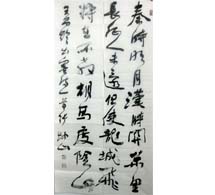 秦時明月漢時關萬里
長征人未還但使龍城飛
將在不教胡馬度陰山
王昌齡出塞